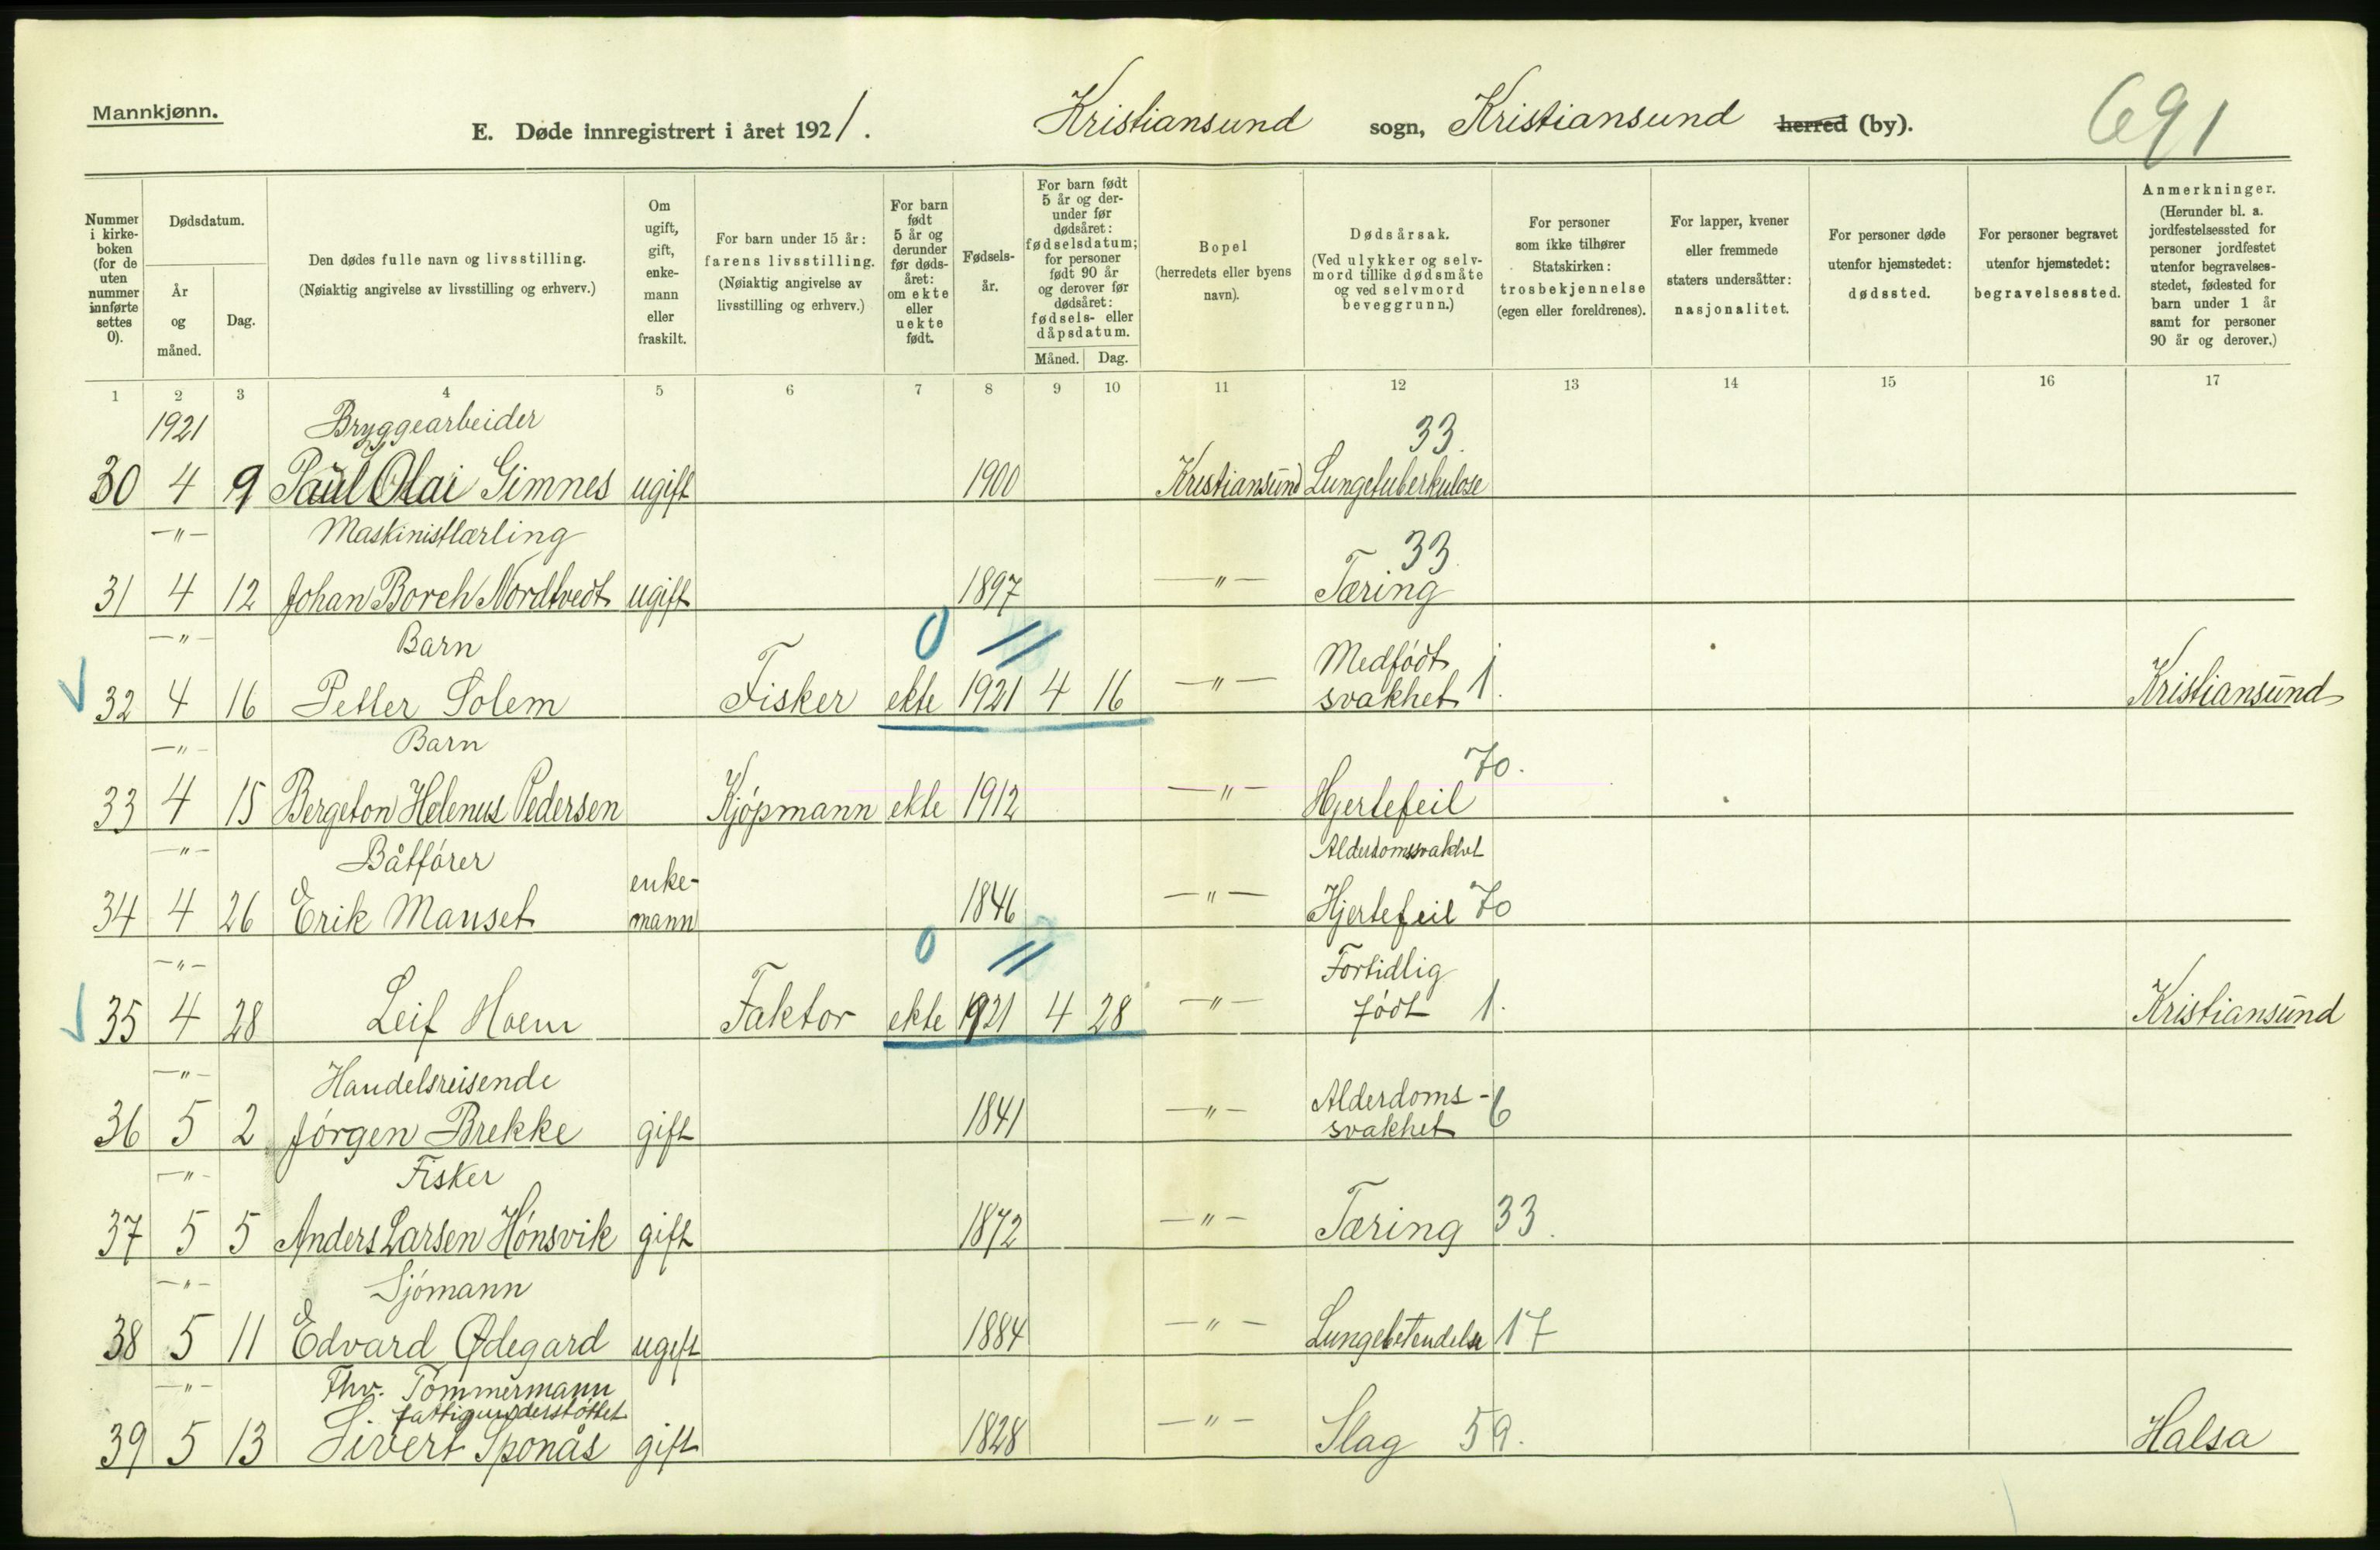 Mannkjønn.
E. Døde innregistrert i året 1921. Kristiansund sogn, Kristiansund herred (by). 691
Nummer i kirkeboken (for de uten nummer innførte settes 0).
Dødsdatum.
År og måned.
Dag.
Den dødes fulle navn og livsstilling. (Nøiaktig angivelse av livsstilling og erhverv.)
Om ugift, gift, enkemann eller fraskilt.
For barn under 15 år: farens livsstilling. (Nøiaktig angivelse av livsstilling og erhverv.)
For barn født 5 år og derunder før dødsåret: om ekte eller uekte født.
Fødselsår.
For barn født 5 år og derunder før dødsåret: fødselsdatum; for personer født 90 år og derover før dødsåret: fødsels- eller dåpsdatum.
Måned. Dag.
Bopel (herredets eller byens navn).
Dødsårsak. (Ved ulykker og selvmord tillike dødsmåte og ved selvmord beveggrunn.)
For personer som ikke tilhører Statskirken: trosbekjennelse (egen eller foreldrenes).
For lapper, kvener eller fremmede staters undersåtter: nasjonalitet.
For personer døde utenfor hjemstedet: dødssted.
For personer begravet utenfor hjemstedet: begravelsessted.
Anmerkninger. (Herunder bl. a. jordfestelsessted for personer jordfestet utenfor begravelsesstedet, fødested for barn under 1 år samt for personer 90 år og derover.)
1 2 3 4 5 6 7 8 9 10 11 12 13 14 15 16 17
1921 Bryggearbeider 33.
30 4 9 Paul Olai Gimnes ugift 1900 Kristiansund Lungetuberkulose
—"— Maskinistlærling 33
31 4 12 Johan Borch Nordtvedt ugift 1897 —"— Tæring
—"— Barn 0 // Medfødt
32 4 16 Petter Solem Fisker ekte 1921 4 16 —"— svakhet 1. Kristiansund
—"— Barn 70.
33 4 15 Bergeton Helenus Pedersen Kjøpmann ekte 1912 —"— Hjertefeil
—"— Båtfører enke- Alderdomssvakhet
34 4 26 Erik Manset mann 1846 —"— Hjertefeil 70
—"— 0 // Fortidlig
35 4 28 Leif Hoem Faktor ekte 1921 4 28 —"— født 1. Kristiansund
—"— Handelsreisende Alderdoms-
36 5 2 Jørgen Brekke gift 1841 —"— svakhet 6
—"— Fisker
37 5 5 Anders Larsen Hønsvik gift 1872 —"— Tæring 33.
—"— Sjømann
38 5 11 Edvard Ødegard ugift 1884 —"— Lungebetendelse 17
—"— Fhv. Tømmermann
fattigunderstøttet
39 5 13 Sivert Sponås gift 1828 —"— Slag 59. Halsa